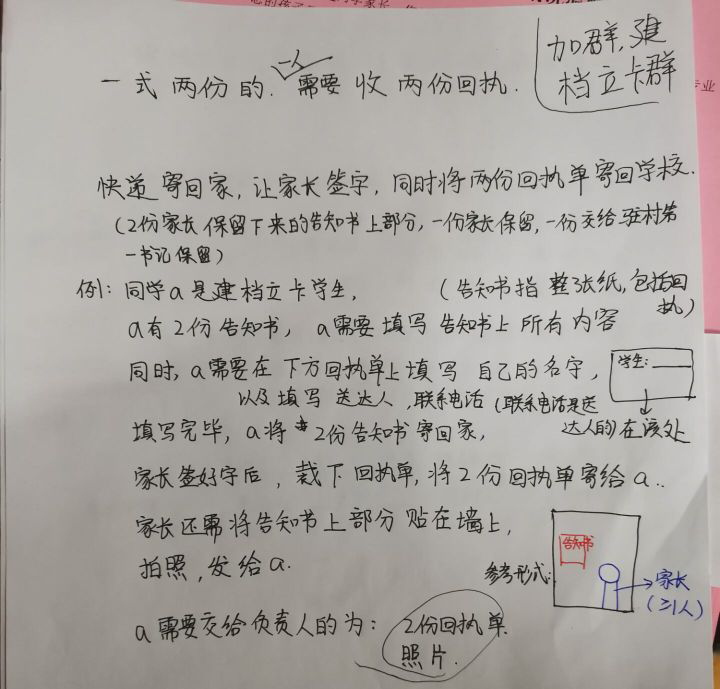 加群,建
档立卡群
一人
一式两份的.需要收两份回执.
快递寄回家,让家长签字,同时将两份回执单寄回学校.
(2份家长保留下来的告知书上部分,一份家长保留,一份交给驻村第
一书记保留)
例:同学a是建档立卡学生,(告知书指整张纸,包括回
执)
a有2份告知书,a需要填写告知书上所有内容
同时,a需要在下方回执单上填写自己的名字,
学生:
以及填写送达人,联系电话(联系电话是送
达人的)在该处
填写完毕,a将2份告知书寄回家,
家长签好字后,裁下回执单,将2份回执单寄给a..
家长还需将告知书上部分贴在墙上,
拍照,发给a.
参考形式:
告知书
家长
(≥1人)
a需要交给负责人的为:2份回执单
照片.